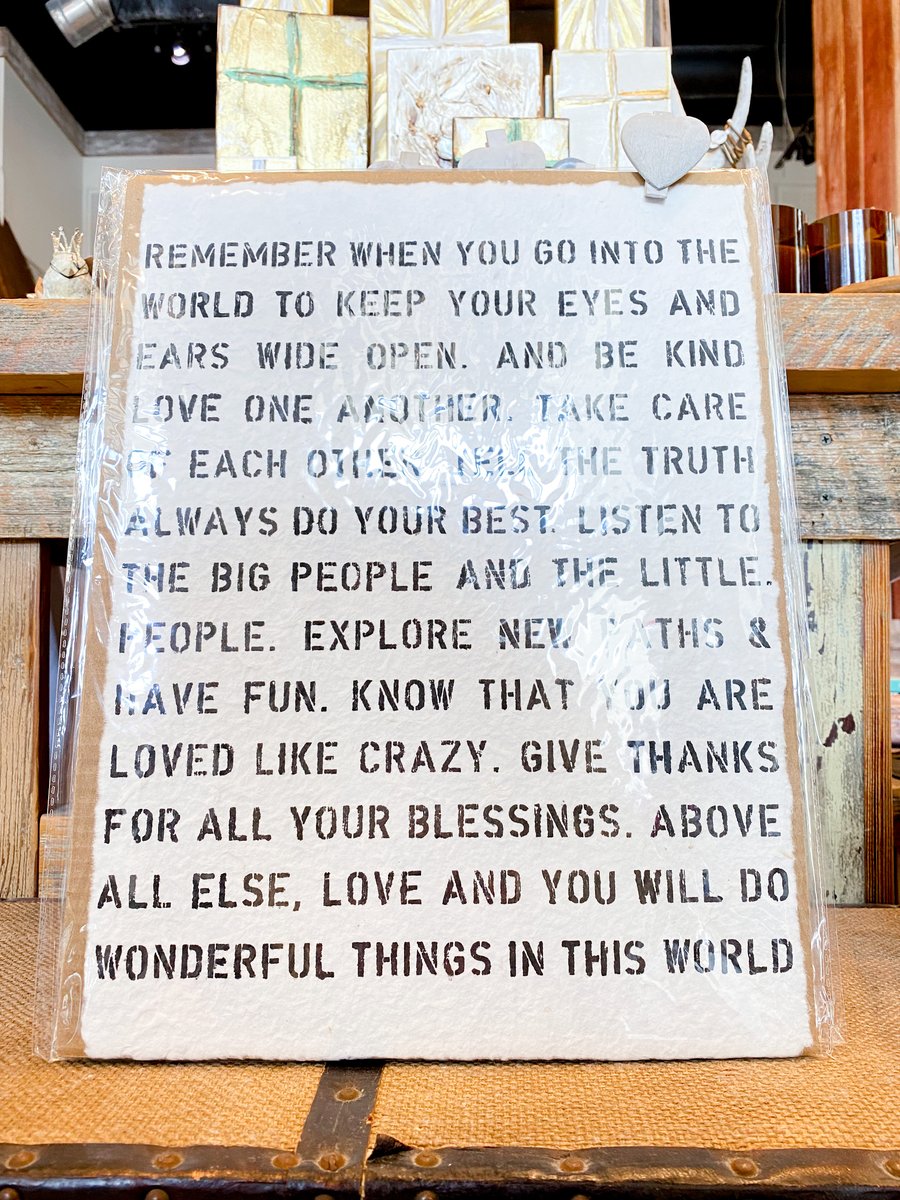 REMEMBER WHEN YOU GO INTO THE
WORLD TO KEEP YOUR EYES AND
EARS WIDE OPEN. AND BE KIND
LOVE ONE ANOTHER. TAKE CARE
OF EACH OTHER TELL THE TRUTH
ALWAYS DO YOUR BEST. LISTEN TO
THE BIG PEOPLE AND THE LITTLE.
PEOPLE. EXPLORE NEW PATHS &
HAVE FUN. KNOW THAT YOU ARE
LOVED LIKE CRAZY. GIVE THANKS
FOR ALL YOUR BLESSINGS. ABOVE
ALL ELSE, LOVE AND YOU WILL DO
WONDERFUL THINGS IN THIS WORLD